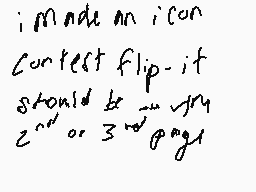 i made an icon
contest flip-it
should be on my
2nd or 3rd page